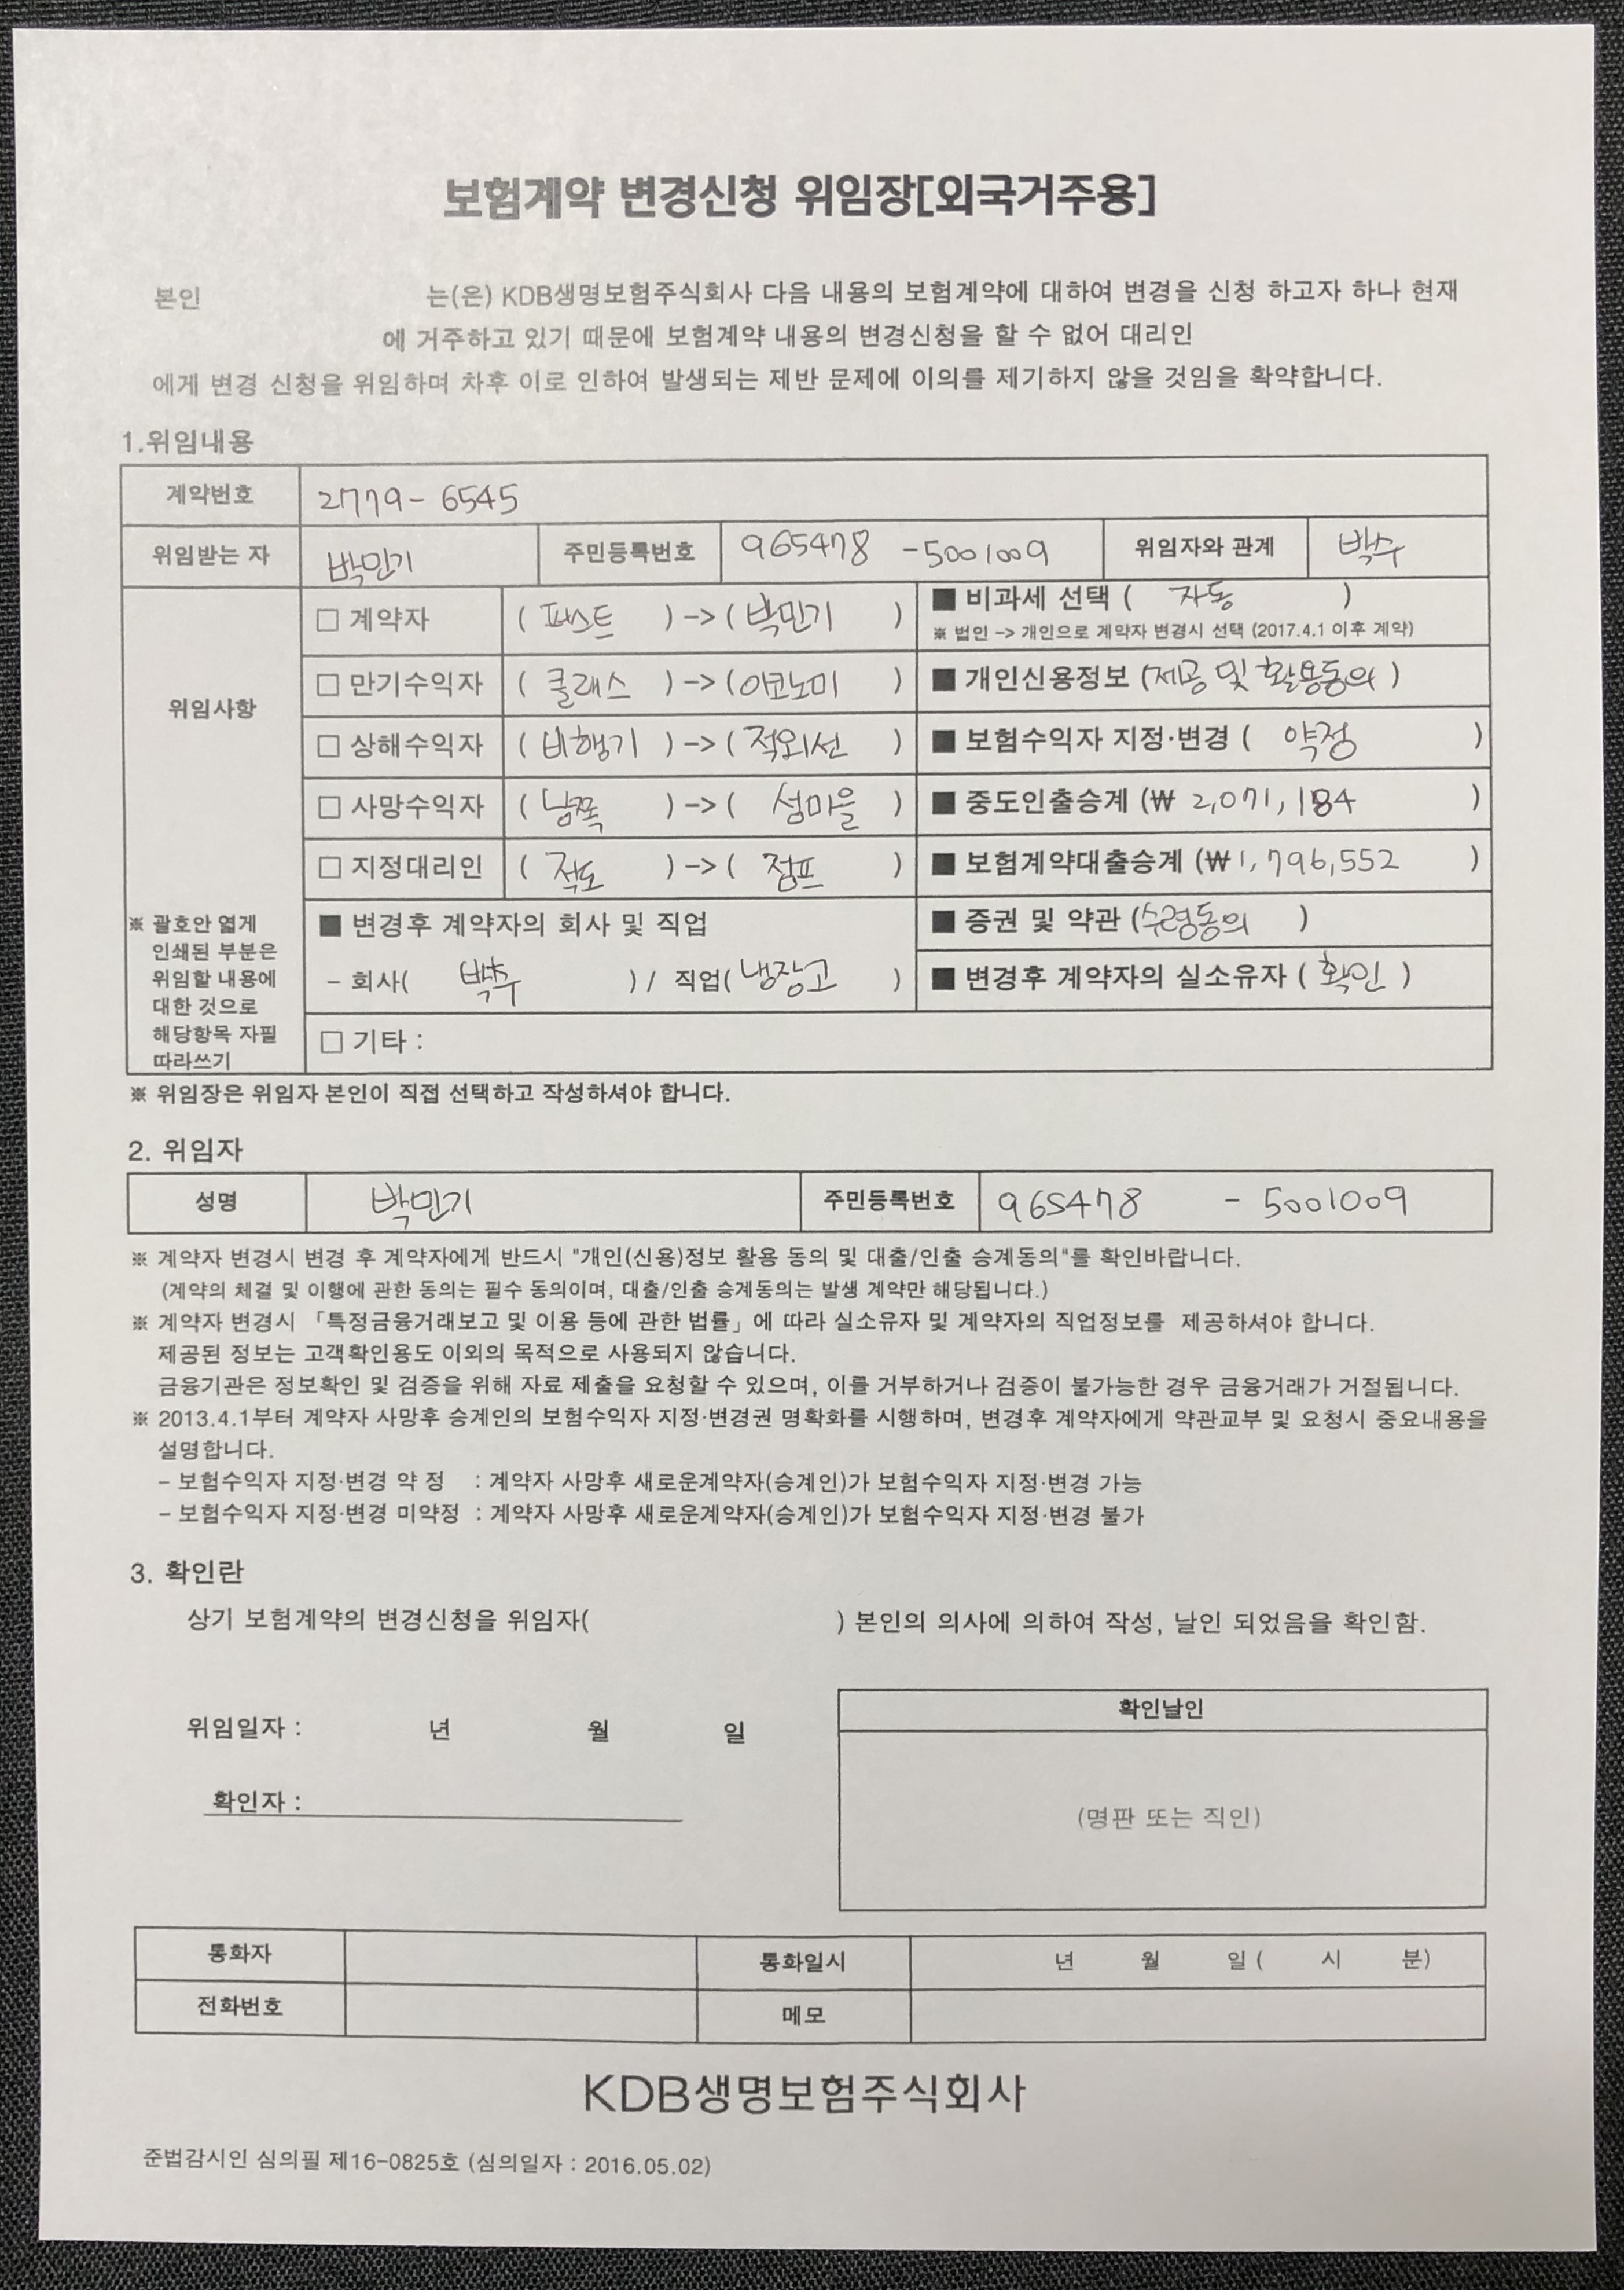 보험계약 변경신청 위임장[외국거주용]
본인 는(은) KDB생명보험주식회사 다음 내용의 보험계약에 대하여 변경을 신청 하고자 하나 현재
에 거주하고 있기 때문에 보험계약 내용의 변경신청을 할 수 없어 대리인
에게 변경 신청을 위임하며 차후 이로 인하여 발생되는 제반 문제에 이의를 제기하지 않을 것임을 확약합니다.
1.위임내용
계약번호 2779-6545
위임받는 자 박민기 주민등록번호 965478 -5001009 위임자와 관계 박수
위임사항
□ 계약자 ( 퍼스트 ) -> ( 박민기 ) ■ 비과세 선택 ( 자동 )
※ 법인 -> 개인으로 계약자 변경시 선택 (2017.4.1 이후 계약)
□ 만기수익자 ( 클래스 ) -> ( 이코노미 ) ■ 개인신용정보 (제공 및 활용동의)
□ 상해수익자 ( 비행기 ) -> ( 적외선 ) ■ 보험수익자 지정·변경 ( 약정 )
□ 사망수익자 ( 남쪽 ) -> ( 섬마을 ) ■ 중도인출승계 (₩ 2,071,184 )
□ 지정대리인 ( 적도 ) -> ( 점프 ) ■ 보험계약대출승계 (₩ 1,796,552 )
※ 괄호안 엷게
인쇄된 부분은
위임할 내용에
대한 것으로
해당항목 자필
따라쓰기
■ 변경후 계약자의 회사 및 직업 ■ 증권 및 약관 (수령동의 )
- 회사( 백수 ) / 직업( 냉장고 ) ■ 변경후 계약자의 실소유자 ( 확인 )
□ 기타 :
※ 위임장은 위임자 본인이 직접 선택하고 작성하셔야 합니다.
2. 위임자
성명 박민기 주민등록번호 965478 - 5001009
※ 계약자 변경시 변경 후 계약자에게 반드시 "개인(신용)정보 활용 동의 및 대출/인출 승계동의"를 확인바랍니다.
(계약의 체결 및 이행에 관한 동의는 필수 동의이며, 대출/인출 승계동의는 발생 계약만 해당됩니다.)
※ 계약자 변경시 「특정금융거래보고 및 이용 등에 관한 법률」에 따라 실소유자 및 계약자의 직업정보를 제공하셔야 합니다.
제공된 정보는 고객확인용도 이외의 목적으로 사용되지 않습니다.
금융기관은 정보확인 및 검증을 위해 자료 제출을 요청할 수 있으며, 이를 거부하거나 검증이 불가능한 경우 금융거래가 거절됩니다.
※ 2013.4.1부터 계약자 사망후 승계인의 보험수익자 지정·변경권 명확화를 시행하며, 변경후 계약자에게 약관교부 및 요청시 중요내용을
설명합니다.
- 보험수익자 지정·변경 약 정 : 계약자 사망후 새로운계약자(승계인)가 보험수익자 지정·변경 가능
- 보험수익자 지정·변경 미약정 : 계약자 사망후 새로운계약자(승계인)가 보험수익자 지정·변경 불가
3. 확인란
상기 보험계약의 변경신청을 위임자( ) 본인의 의사에 의하여 작성, 날인 되었음을 확인함.
위임일자 : 년 월 일
확인자 :
확인날인
(명판 또는 직인)
통화자 통화일시 년 월 일 ( 시 분)
전화번호 메모
KDB생명보험주식회사
준법감시인 심의필 제16-0825호 (심의일자 : 2016.05.02)